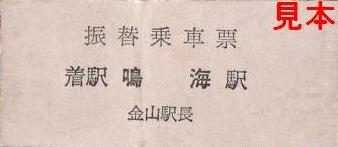 見本
振替乗車票
着駅 鳴 海駅
金山駅長